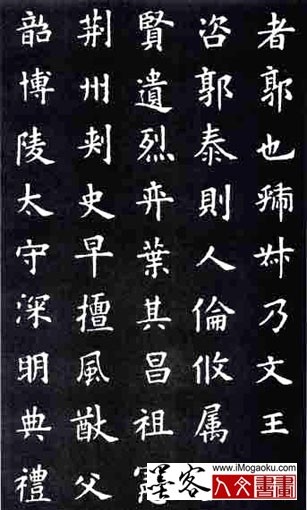 者郭也虢叔乃文王
咨郭泰則人倫攸属
賢遺烈弈葉其昌祖
荆州刾史早擅風猷父
韶博陵太守深明典禮
www.iMogaoku.com
墨客 人文書畫